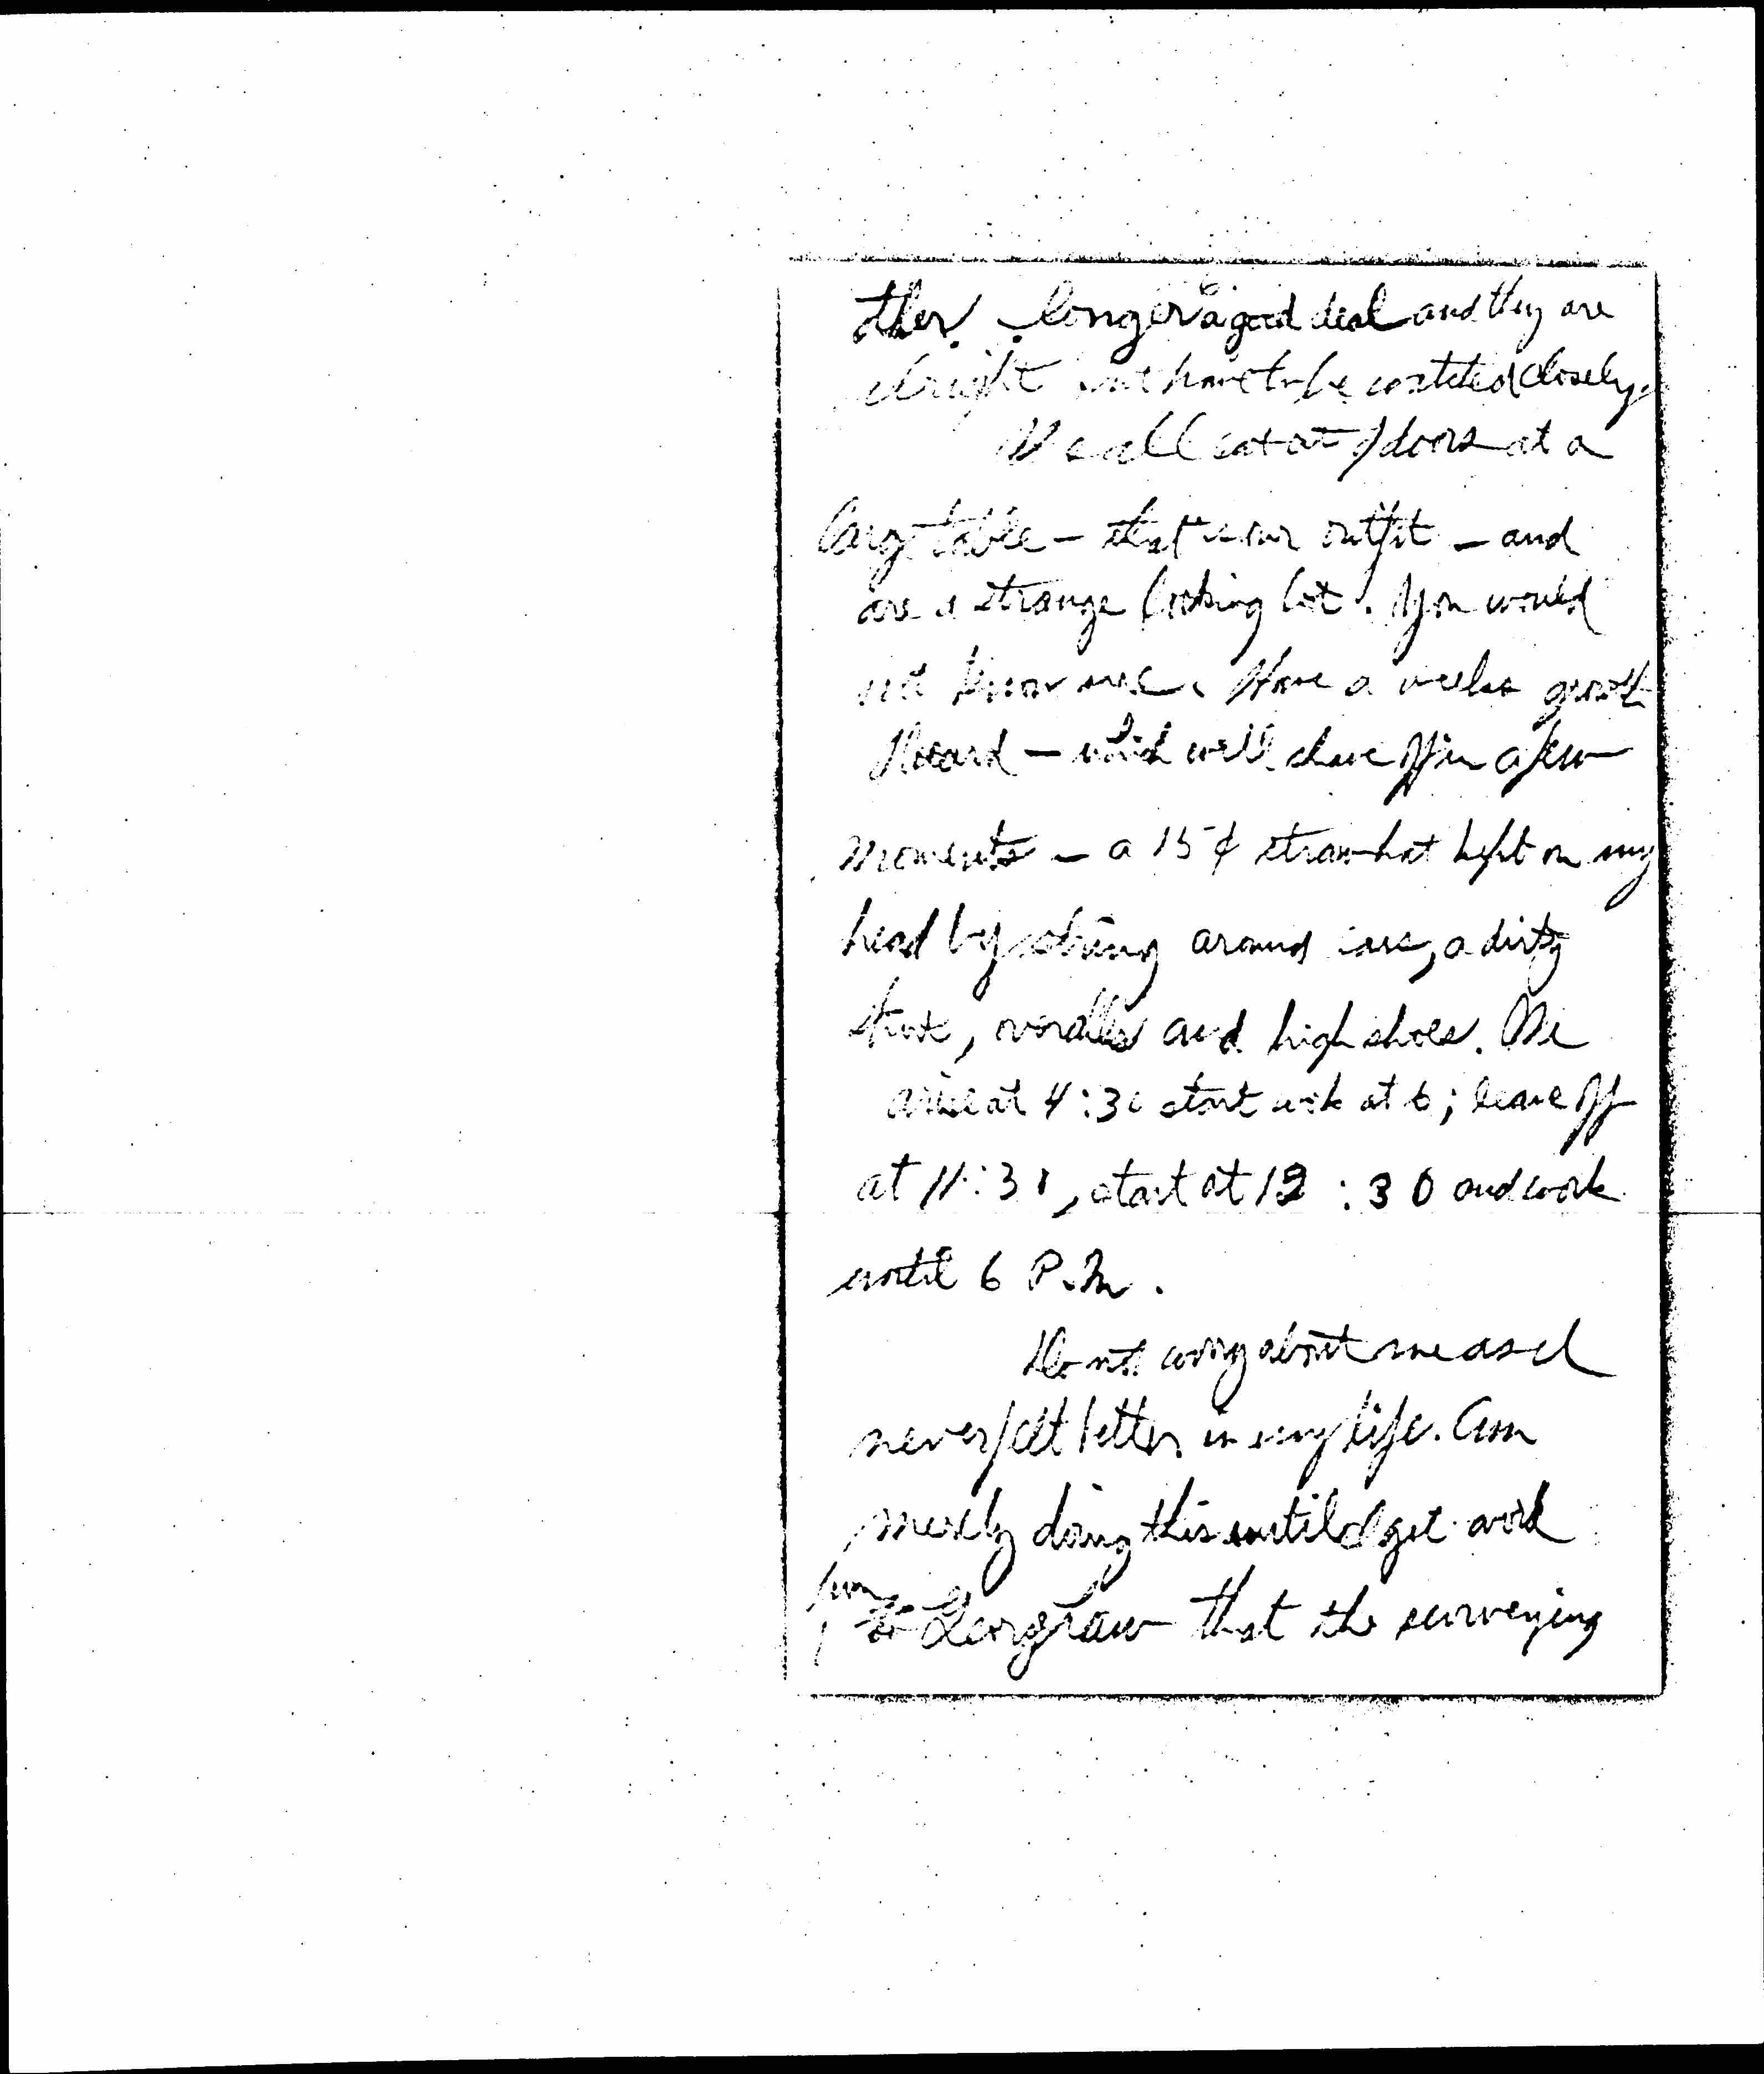 other longer a good deal and they are
alright but have to be watched closely.
We all eat out of doors at a
large table - that is our outfit - and
are a strange looking lot. You would
not know me. Have a weeks growth
of beard - which I will shave off in a few
moments - a 15¢ straw hat kept on my
head by string around ears, a dirty
shirt, overalls and high shoes. We
arise at 4:30 start work at 6; leave off
at 11:30, start at 12:30 and work
until 6 P.M.
Do not worry about me as I
never felt better in my life. Am
merely doing this until I get word
from
that the surveying